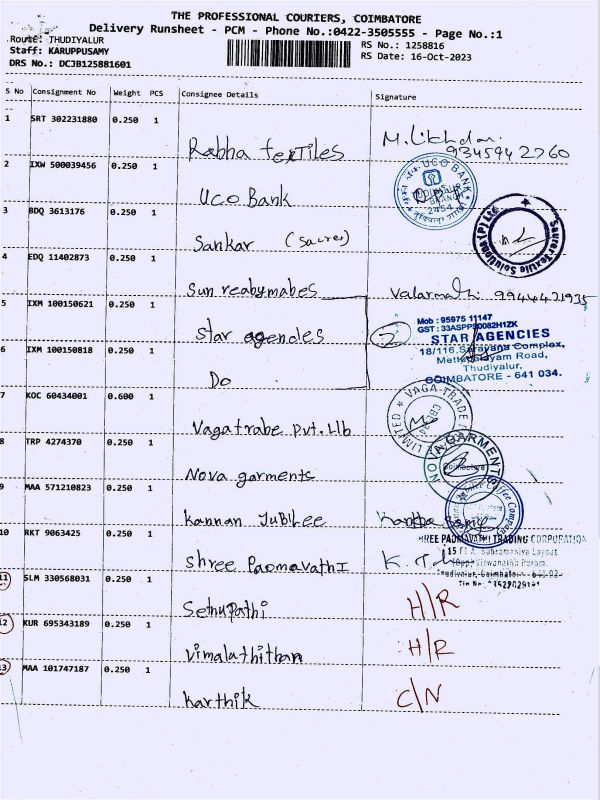 THE PROFESSIONAL COURIERS, COIMBATORE
Delivery Runsheet - PCM - Phone No.:0422-3505555 - Page No.:1
Route: THUDIYALUR
Staff: KARUPPUSAMY
DRS No.: DCJB125881601
RS No.: 1258816
RS Date: 16-Oct-2023
S No Consignment No Weight PCS Consignee Details Signature
1 SRT 302231880 0.250 1
Rabha texTiles M. Likhdar
9345942760
2 IXM 500039456 0.250 1
UCO Bank
UCO BANK
2454
3 BDQ 3613176 0.250 1
Sankar (Sacrer)
Saura Textile Solutions (P) Ltd
4 EDQ 11402873 0.250 1
Sun reabymabes Valarmathi 9944421935
5 IXM 100150621 0.250 1
Star agencies
2
Mob : 95975 11147
GST : 33ASPPS0082H1ZK
STAR AGENCIES
18/116, Sarayana Complex,
Mettupalayam Road,
Thudiyalur,
COIMBATORE - 641 034.
6 IXM 100150818 0.250 1
Do
7 KOC 60434001 0.600 1
Vagatrabe pvt.Ltb
VAGA-TRADE
LIMITED
8 TRP 4274370 0.250 1
Nova garments
NOVA GARMENTS
Coimbatore
9 MAA 571210823 0.250 1
Kannan JuBiLee
Coffee Company
10 RKT 9063425 0.250 1
Shree PADMAVAThI
SHREE PADMAVATHI TRADING CORPORATION
11 SLM 330568031 0.250 1
Sethupathi H/R
12 KUR 695343189 0.250 1
Vimalathithan H/R
13 MAA 101747187 0.250 1
Karthik C/N